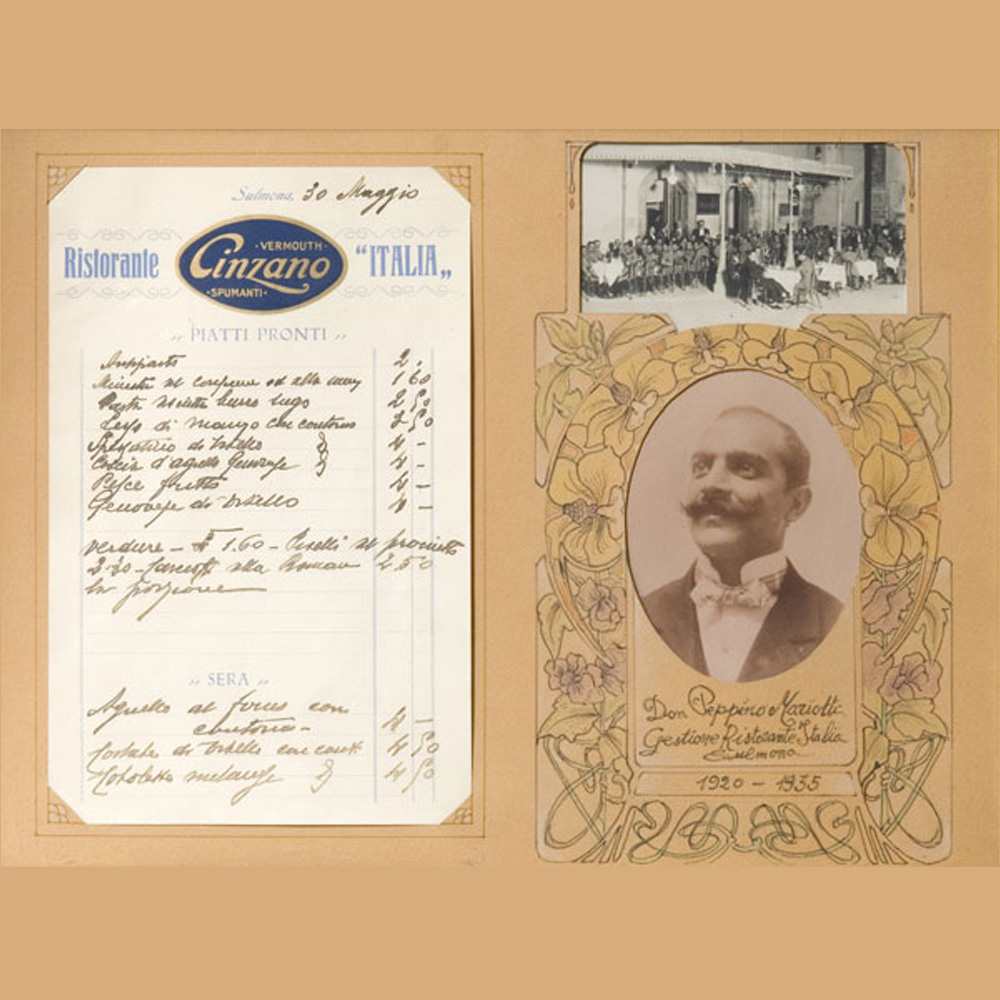 Sulmona, 30 Maggio
Ristorante
VERMOUTH
Cinzano
SPUMANTI
"ITALIA„
„ PIATTI PRONTI „
Antipasto 2.
Minestra al consume od alla 1 60
Pasta burro sugo 2 50
Lesso di manzo con contorno 3 50
Spezzatino di Vitello 4 -
Coscia d'agnello Genovese 4 -
Pesce fritto 4 -
Genovese di Vitello 4 -
Verdure - 1.60 - Piselli al prociutto
2.30 - alla Romana 2 50
„ SERA „
Agnello al forno con
contorno - 4 -
di Vitello con 4 50
Cotolette milanese 4 50
Don Peppino Mariotti
Gestione Ristorante Italia
Sulmona
1920 - 1935